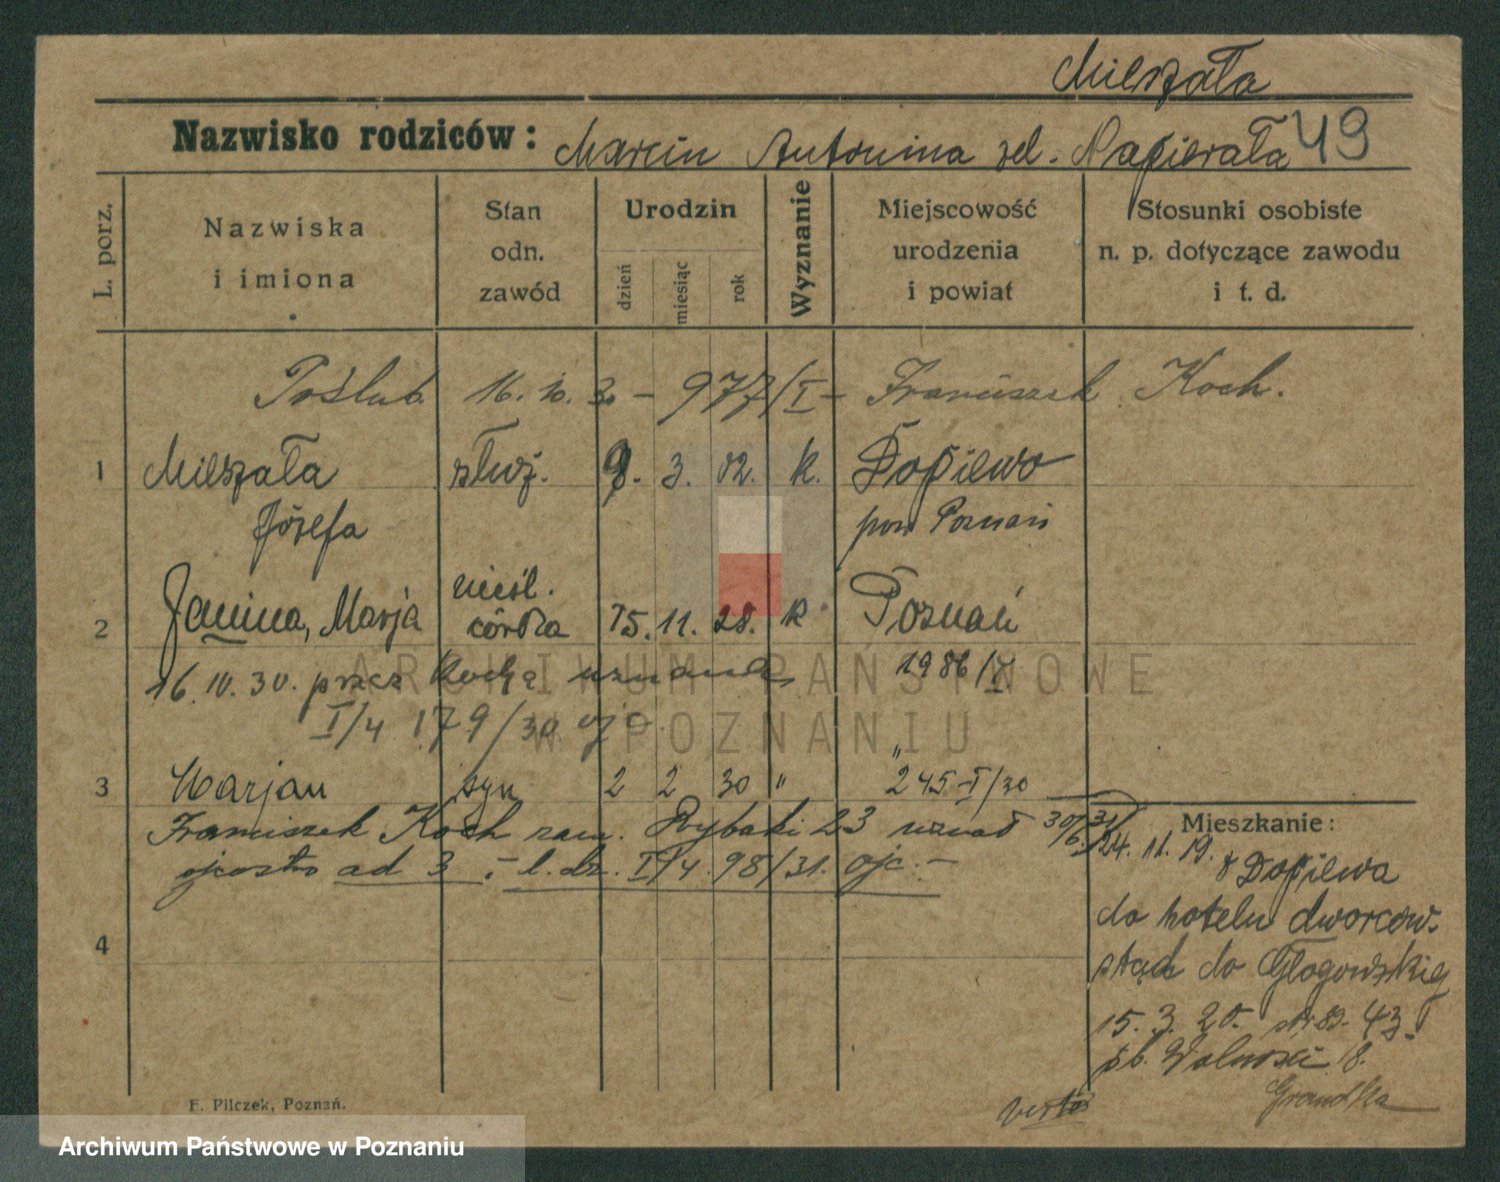 Mieszała
Nazwisko rodziców: Marcin Antonina zd. Napierała 49
L. porz.
Nazwiska
i imiona
Stan
odn.
zawód
Urodzin
dzień
miesiąc
rok
Wyznanie
Miejscowość
urodzenia
i powiat
Stosunki osobiste
n. p. dotyczące zawodu
i t. d.
Poślub. 16. 10. 30 – 977/I – Franciszek Koch.
1 Mieszała służ. 9. 3. 02. k. Dopiewo
Józefa pow Poznań
2 Janina, Marja nieśl. córka 15. 11. 28. k Poznań
16. 10. 30. przez Kocha uznana 1986/
I/4 179/30. ojc.
3 Marjan syn 2 2 30 " "
245-I/30
Franciszek Koch zam. Rybaki 23 uznał 30/6. 31
ojcostwo ad 3. – l. dz. I/4. 98/31. ojc. –
4
Mieszkanie:
24. 11. 19. z Dopiewa
do hotelu dworcow.
stąd do Głogowskiej
15. 3. 20. str. 89. 43.
F. Pilczek, Poznań.
verte
ARCHIWUM PAŃSTWOWE
W POZNANIU
Archiwum Państwowe w Poznaniu